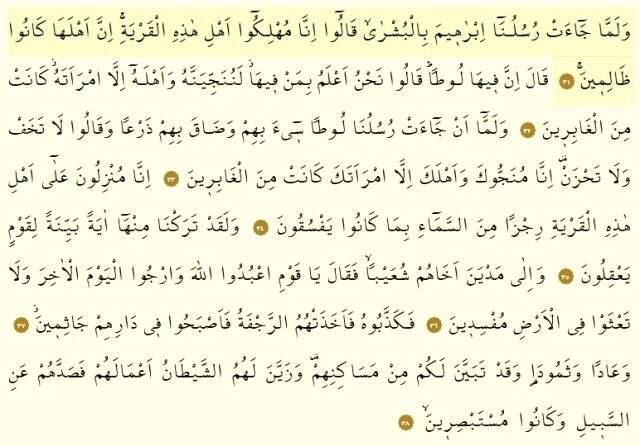 وَلَمَّا جَٓاءَتْ رُسُلُنَٓا اِبْرٰه۪يمَ بِالْبُشْرٰىۙ قَالُٓوا اِنَّا مُهْلِكُٓوا اَهْلِ هٰذِهِ الْقَرْيَةِۚ اِنَّ اَهْلَهَا كَانُوا
ظَالِم۪ينَۚ ﴿٣١﴾ قَالَ اِنَّ ف۪يهَا لُوطًاۜ قَالُوا نَحْنُ اَعْلَمُ بِمَنْ ف۪يهَاۘ لَنُنَجِّيَنَّهُ وَاَهْلَهُٓ اِلَّا امْرَاَتَهُۘ كَانَتْ
مِنَ الْغَابِر۪ينَ ﴿٣٢﴾ وَلَمَّٓا اَنْ جَٓاءَتْ رُسُلُنَا لُوطًا س۪ٓيءَ بِهِمْ وَضَاقَ بِهِمْ ذَرْعًا وَقَالُوا لَا تَخَفْ
وَلَا تَحْزَنْ۠ اِنَّا مُنَجُّوكَ وَاَهْلَكَ اِلَّا امْرَاَتَكَ كَانَتْ مِنَ الْغَابِر۪ينَ ﴿٣٣﴾ اِنَّا مُنْزِلُونَ عَلٰٓى اَهْلِ
هٰذِهِ الْقَرْيَةِ رِجْزًا مِنَ السَّمَٓاءِ بِمَا كَانُوا يَفْسُقُونَ ﴿٣٤﴾ وَلَقَدْ تَرَكْنَا مِنْهَٓا اٰيَةً بَيِّنَةً لِقَوْمٍ
يَعْقِلُونَ ﴿٣٥﴾ وَاِلٰى مَدْيَنَ اَخَاهُمْ شُعَيْبًاۙ فَقَالَ يَا قَوْمِ اعْبُدُوا اللّٰهَ وَارْجُوا الْيَوْمَ الْاٰخِرَ وَلَا
تَعْثَوْا فِي الْاَرْضِ مُفْسِد۪ينَ ﴿٣٦﴾ فَكَذَّبُوهُ فَاَخَذَتْهُمُ الرَّجْفَةُ فَاَصْبَحُوا ف۪ي دَارِهِمْ جَاثِم۪ينَۘ ﴿٣٧﴾
وَعَادًا وَثَمُودَا۬ وَقَدْ تَبَيَّنَ لَكُمْ مِنْ مَسَاكِنِهِمْ۠ وَزَيَّنَ لَهُمُ الشَّيْطَانُ اَعْمَالَهُمْ فَصَدَّهُمْ عَنِ
السَّب۪يلِ وَكَانُوا مُسْتَبْصِر۪ينَۙ ﴿٣٨﴾